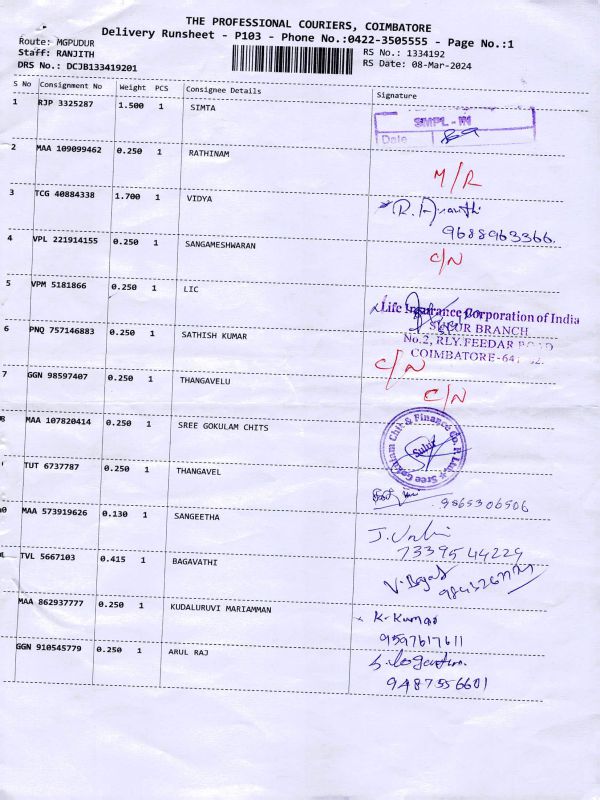 THE PROFESSIONAL COURIERS, COIMBATORE
Delivery Runsheet - P103 - Phone No.:0422-3505555 - Page No.:1
Route: MGPUDUR
Staff: RANJITH
DRS No.: DCJB133419201
RS No.: 1334192
RS Date: 08-Mar-2024
S No Consignment No Weight PCS Consignee Details Signature
1 RJP 3325287 1.500 1 SIMTA
SMPL - IN
Date
2 MAA 109099462 0.250 1 RATHINAM M/R
3 TCG 40884338 1.700 1 VIDYA
9688963366.
4 VPL 221914155 0.250 1 SANGAMESHWARAN C/N
5 VPM 5181866 0.250 1 LIC
Life Insurance Corporation of India
SULUR BRANCH
No.2, RLY.FEEDAR ROAD
COIMBATORE-641
6 PNQ 757146883 0.250 1 SATHISH KUMAR C/N
7 GGN 98597407 0.250 1 THANGAVELU C/N
8 MAA 107820414 0.250 1 SREE GOKULAM CHITS
Sree Gokulam Chit & Finance Co. P. Ltd.
Sulur
TUT 6737787 0.250 1 THANGAVEL 9865306506
MAA 573919626 0.130 1 SANGEETHA J.
73395 44229
TVL 5667103 0.415 1 BAGAVATHI
MAA 862937777 0.250 1 KUDALURUVI MARIAMMAN K. Kumar
9597617611
GGN 910545779 0.250 1 ARUL RAJ
9487556601